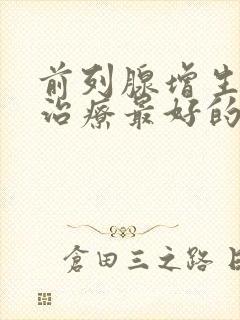 前列腺增生
治疗最好的
仓田三之路